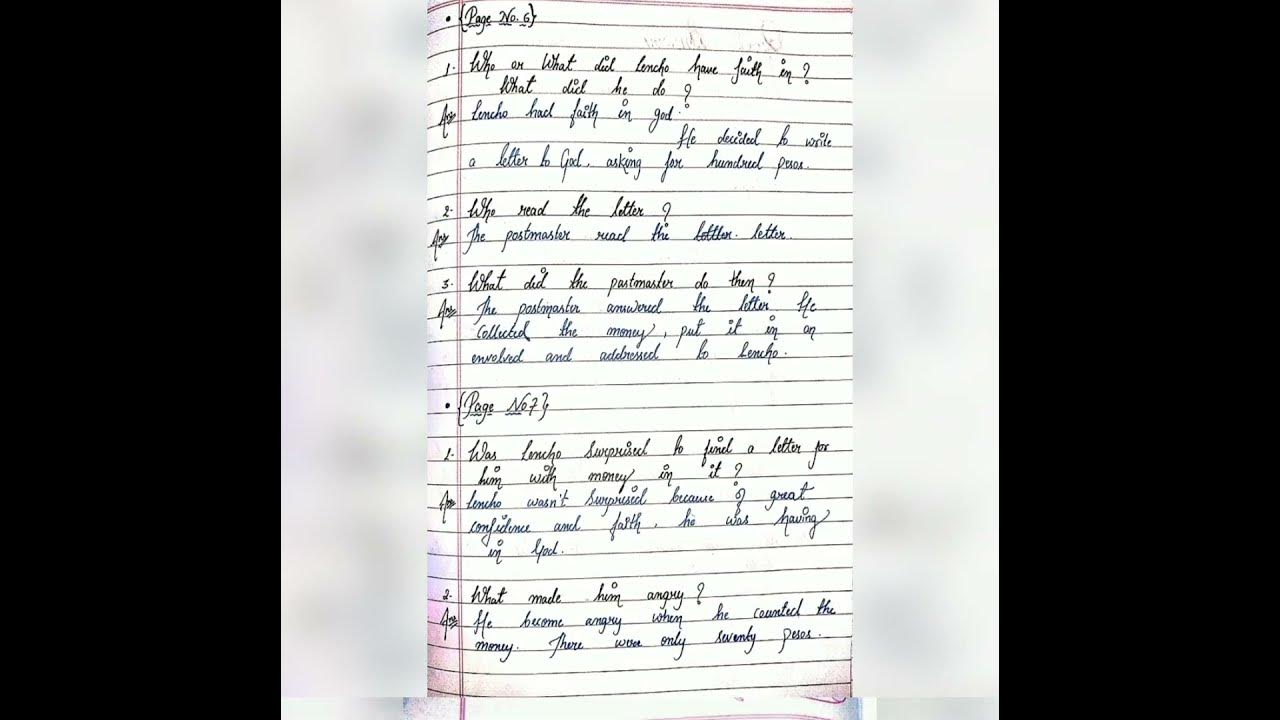 • {Page No. 6}
1. Who or What did Lencho have faith in?
What did he do?
Ans Lencho had faith in god.
He decided to write
a letter to God, asking for hundred pesos.
2. Who read the letter?
Ans The postmaster read the letter.
3. What did the postmaster do then?
Ans The postmaster answered the letter. He
collected the money, put it in an
envolved and addressed to Lencho.
• {Page No 7}
1. Was Lencho surprised to find a letter for
him with money in it?
Ans Lencho wasn't surprised because of great
confidence and faith, he was having
in God.
2. What made him angry?
Ans He become angry when he counted the
money. There were only seventy pesos.